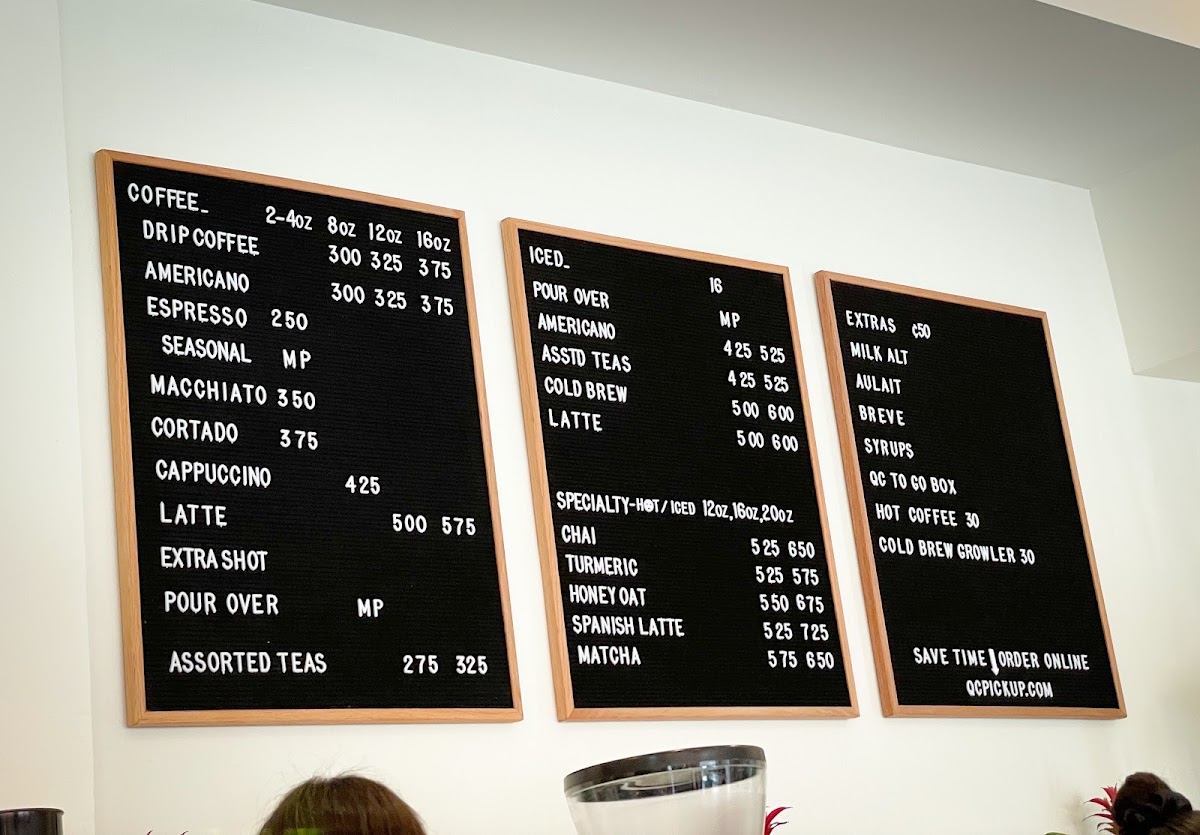 COFFEE_ 2-4oz 8oz 12oz 16oz
DRIP COFFEE 300 325 375
AMERICANO 300 325 375
ESPRESSO 250
SEASONAL MP
MACCHIATO 350
CORTADO 375
CAPPUCCINO 425
LATTE 500 575
EXTRA SHOT
POUR OVER MP
ASSORTED TEAS 275 325
ICED_ 16
POUR OVER MP
AMERICANO 425 525
ASSTD TEAS 425 525
COLD BREW 500 600
LATTE 500 600
SPECIALTY-HOT/ICED 12oz,16oz,20oz
CHAI 525 650
TURMERIC 525 575
HONEY OAT 550 675
SPANISH LATTE 525 725
MATCHA 575 650
EXTRAS ¢50
MILK ALT
AULAIT
BREVE
SYRUPS
QC TO GO BOX
HOT COFFEE 30
COLD BREW GROWLER 30
SAVE TIME ORDER ONLINE
QCPICKUP.COM